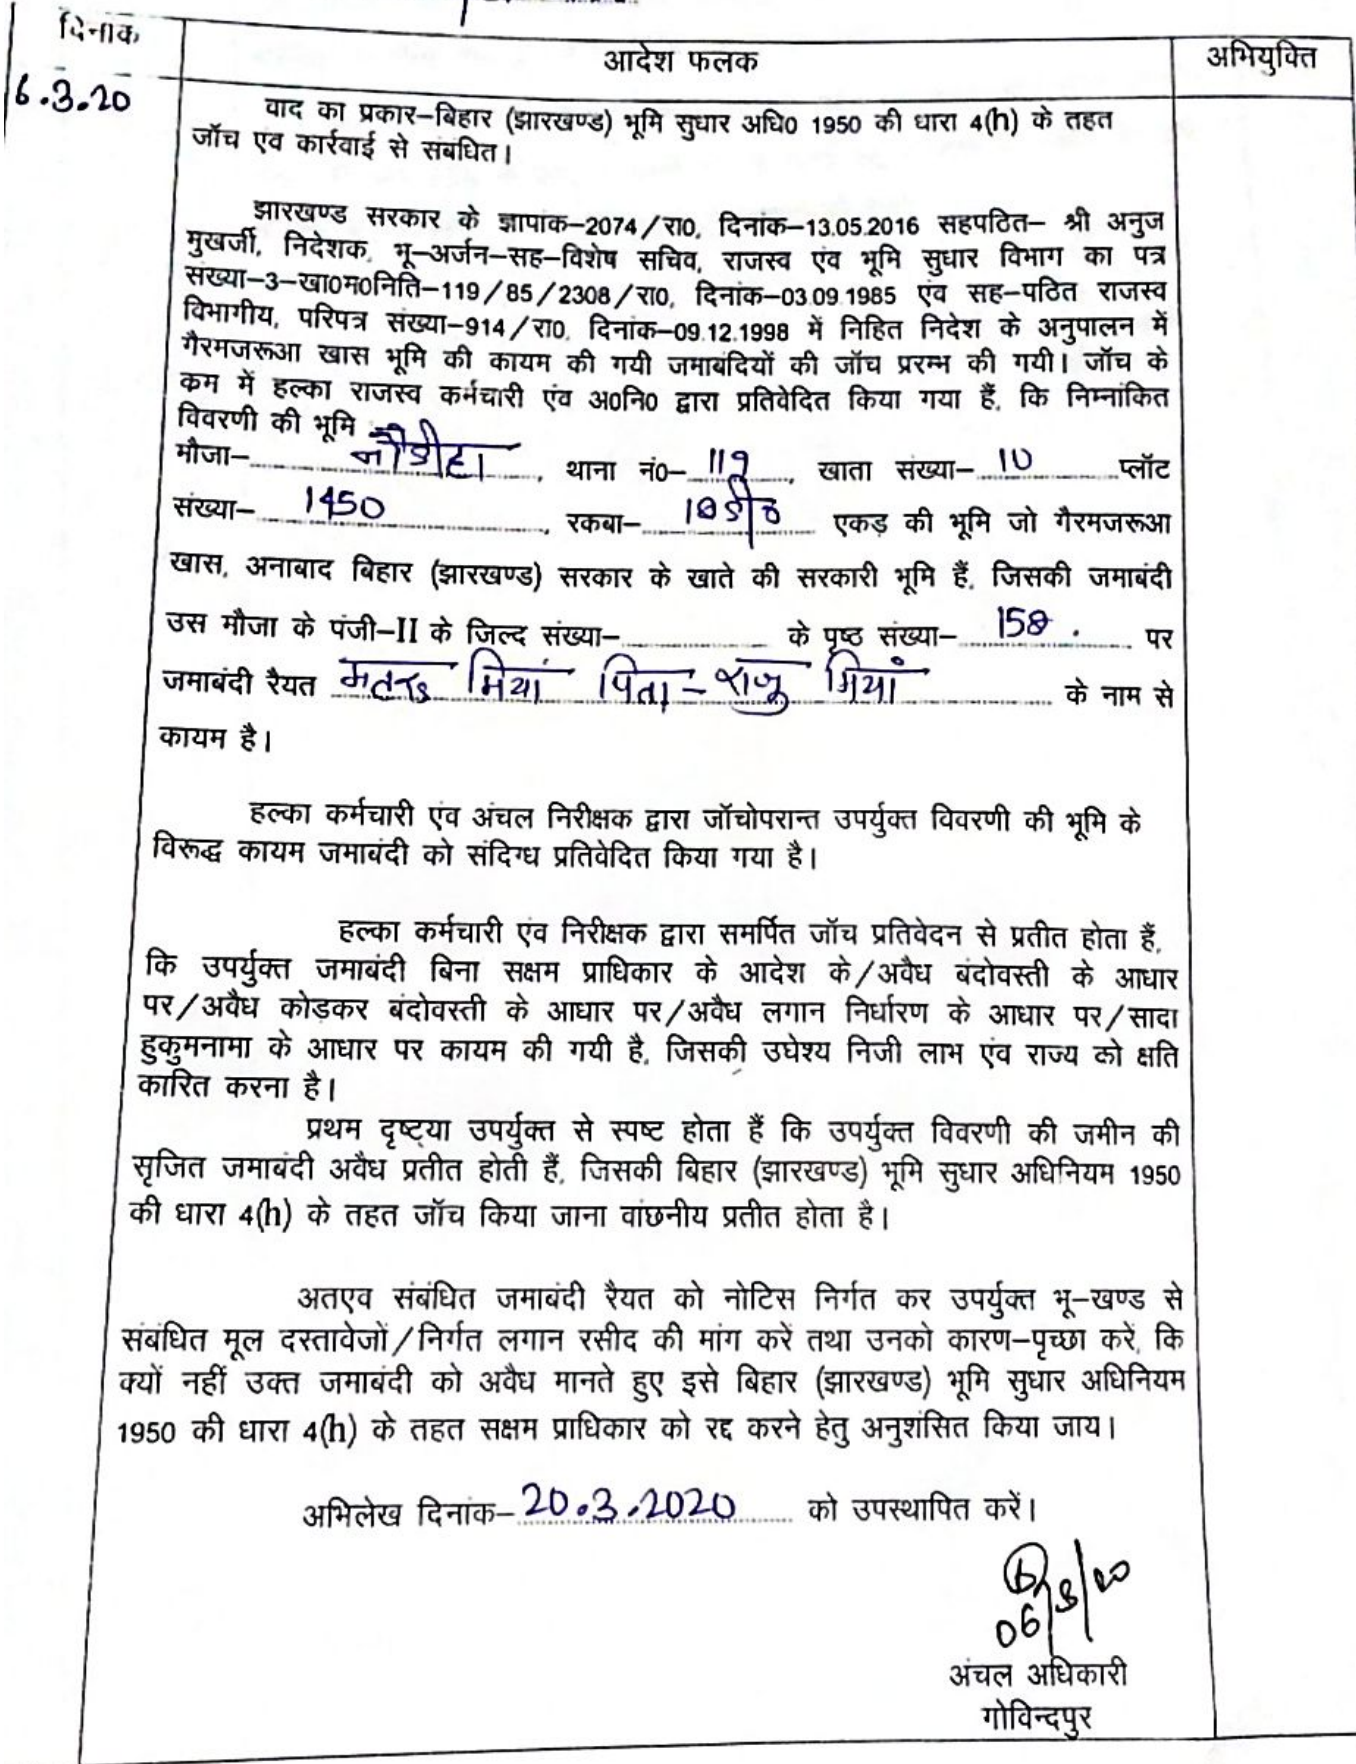 दिनांक
आदेश फलक
अभियुक्ति
6.3.20
वाद का प्रकार–बिहार (झारखण्ड) भूमि सुधार अधि0 1950 की धारा 4(h) के तहत
जॉच एंव कार्रवाई से संबंधित।
झारखण्ड सरकार के ज्ञापांक–2074/रा0, दिनांक–13.05.2016 सहपठित– श्री अनुज
मुखर्जी, निदेशक, भू–अर्जन–सह–विशेष सचिव, राजस्व एंव भूमि सुधार विभाग का पत्र
संख्या–3–खा0म0निति–119/85/2308/रा0, दिनांक–03.09.1985 एंव सह–पठित राजस्व
विभागीय, परिपत्र संख्या–914/रा0, दिनांक–09.12.1998 में निहित निदेश के अनुपालन में
गैरमजरूआ खास भूमि की कायम की गयी जमाबंदियों की जॉच प्ररम्भ की गयी। जॉच के
कम में हल्का राजस्व कर्मचारी एंव अ0नि0 द्वारा प्रतिवेदित किया गया हैं, कि निम्नांकित
विवरणी की भूमि
मौजा– नौडीहा, थाना नं0– 119, खाता संख्या– 10 प्लॉट
संख्या– 1450, रकबा– एकड़ की भूमि जो गैरमजरूआ
खास, अनाबाद बिहार (झारखण्ड) सरकार के खाते की सरकारी भूमि हैं, जिसकी जमाबंदी
उस मौजा के पंजी–II के जिल्द संख्या– के पृष्ठ संख्या– 158 . पर
जमाबंदी रैयत मियां पिता – राजू मियां के नाम से
कायम है।
हल्का कर्मचारी एंव अंचल निरीक्षक द्वारा जॉचोपरान्त उपर्युक्त विवरणी की भूमि के
विरूद्ध कायम जमाबंदी को संदिग्ध प्रतिवेदित किया गया है।
हल्का कर्मचारी एंव निरीक्षक द्वारा समर्पित जॉच प्रतिवेदन से प्रतीत होता हैं,
कि उपर्युक्त जमाबंदी बिना सक्षम प्राधिकार के आदेश के/अवैध बंदोवस्ती के आधार
पर/अवैध कोड़कर बंदोवस्ती के आधार पर/अवैध लगान निर्धारण के आधार पर/सादा
हुकुमनामा के आधार पर कायम की गयी है, जिसकी उघेश्य निजी लाभ एंव राज्य को क्षति
कारित करना है।
प्रथम दृष्ट्या उपर्युक्त से स्पष्ट होता हैं कि उपर्युक्त विवरणी की जमीन की
सृजित जमाबंदी अवैध प्रतीत होती हैं, जिसकी बिहार (झारखण्ड) भूमि सुधार अधिनियम 1950
की धारा 4(h) के तहत जॉच किया जाना वांछनीय प्रतीत होता है।
अतएव संबंधित जमाबंदी रैयत को नोटिस निर्गत कर उपर्युक्त भू–खण्ड से
संबंधित मूल दस्तावेजों/निर्गत लगान रसीद की मांग करें तथा उनको कारण–पृच्छा करें, कि
क्यों नहीं उक्त जमाबंदी को अवैध मानते हुए इसे बिहार (झारखण्ड) भूमि सुधार अधिनियम
1950 की धारा 4(h) के तहत सक्षम प्राधिकार को रद्द करने हेतु अनुशंसित किया जाय।
अभिलेख दिनांक– 20.3.2020 को उपस्थापित करें।
06/3/20
अंचल अधिकारी
गोविन्दपुर